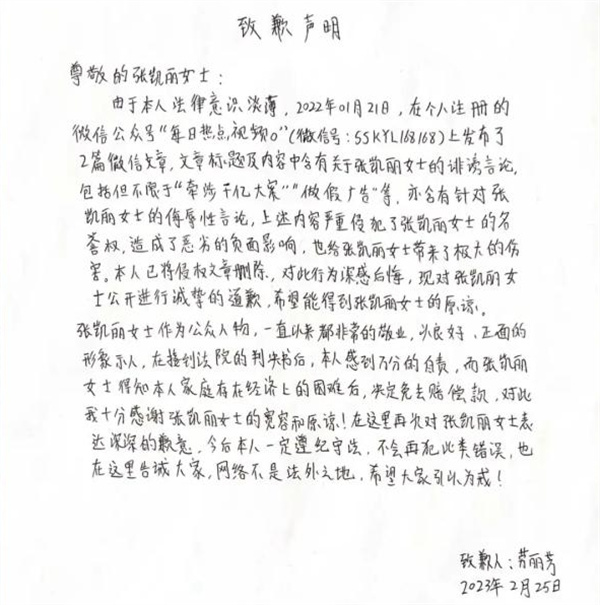 致歉声明
尊敬的张凯丽女士：
由于本人法律意识淡薄，2022年01月21日，在个人注册的
微信公众号“每日热点视频o”（微信号：SSKYL168168）上发布了
2篇微信文章，文章标题及内容中含有关于张凯丽女士的诽谤言论，
包括但不限于“牵涉千亿大案”“做假广告”等，亦含有针对张
凯丽女士的侮辱性言论，上述内容严重侵犯了张凯丽女士的名
誉权，造成了恶劣的负面影响，也给张凯丽女士带来了极大的伤
害。本人已将侵权文章删除，对此行为深感后悔，现对张凯丽女
士公开进行诚挚的道歉，希望能得到张凯丽女士的原谅。
张凯丽女士作为公众人物，一直以来都非常的敬业，以良好、正面的
形象示人，在接到法院的判决书后，本人感到万分的自责，而张凯丽
女士得知本人家庭存在经济上的困难后，决定免去赔偿款，对此
我十分感谢张凯丽女士的宽容和原谅！在这里再次对张凯丽女士表
达深深的歉意，今后本人一定遵纪守法，不会再犯此类错误，也
在这里告诫大家，网络不是法外之地，希望大家引以为戒！
致歉人：劳丽芳
2023年2月25日